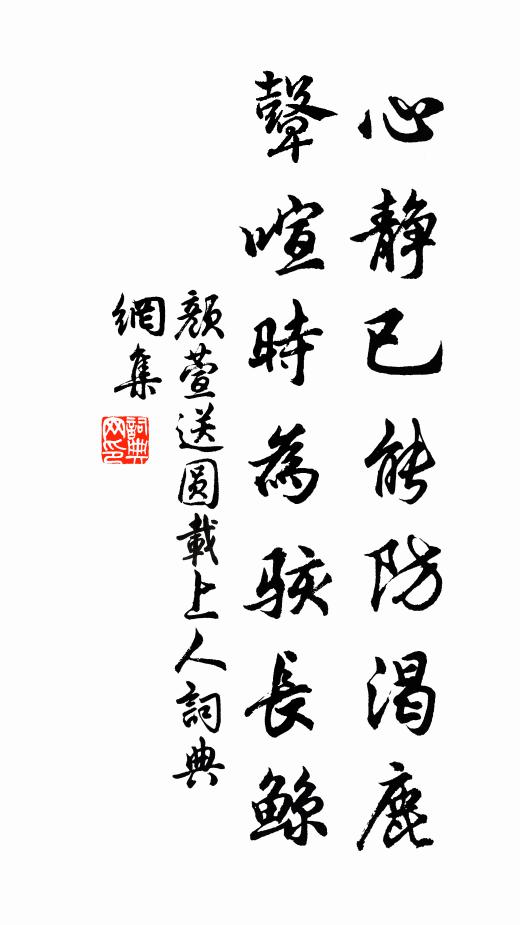 心静已能防渴鹿
鼙喧時為駭長鯨
顏萱送圓載上人詞典
網集
詞典
网印